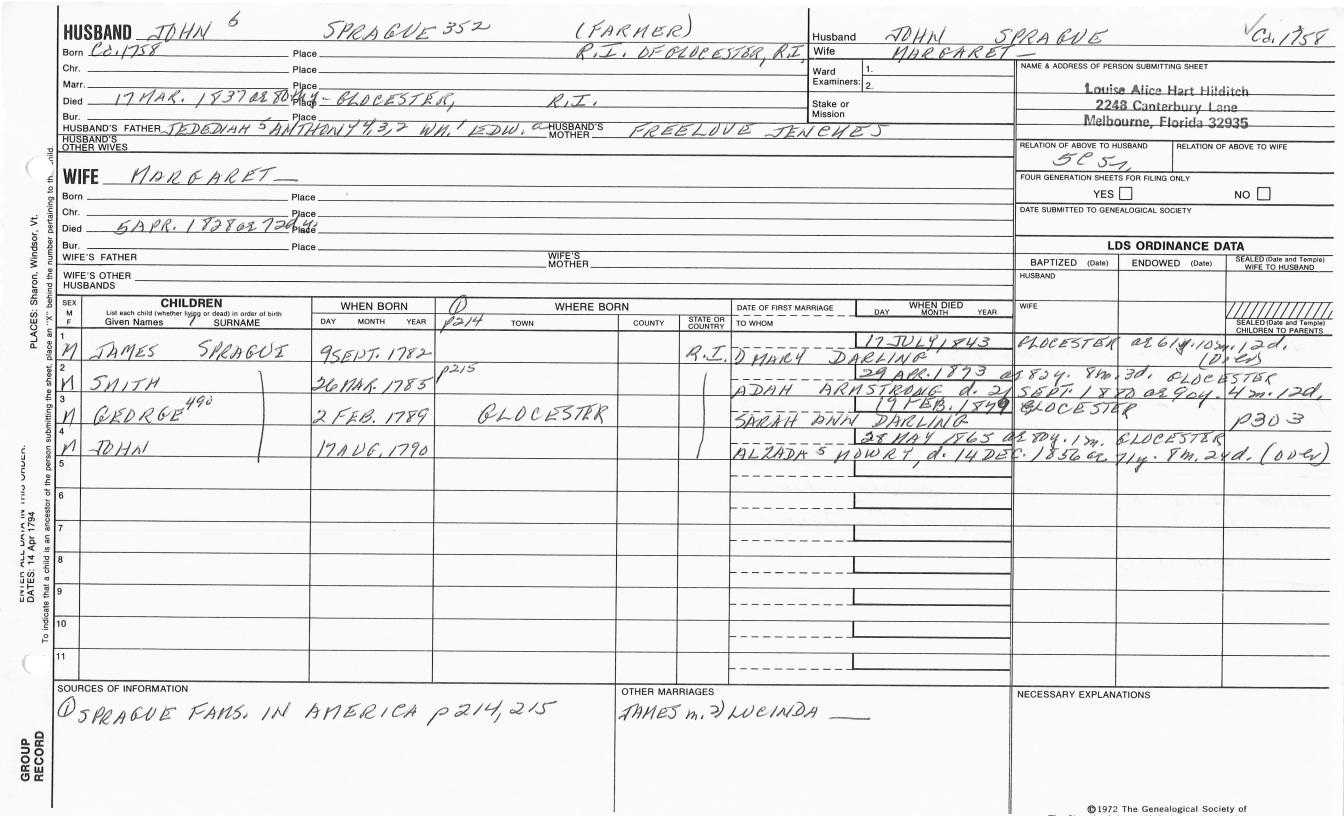 HUSBAND JOHN 6 SPRAGUE 352 (FARMER)
Born Ca. 1758 Place R.I. OF GLOCESTER, R.I.
Chr. Place
Marr. Place
Died 17 MAR. 1837 ae 80th y Place - GLOCESTER, R.I.
Bur. Place
HUSBAND'S FATHER JEDEDIAH 5 ANTHONY 4,3,2 WM. 1 EDW. a HUSBAND'S MOTHER FREELOVE JENCHES
HUSBAND'S OTHER WIVES
Husband JOHN SPRAGUE ✓Ca. 1758
Wife MARGARET —
Ward Examiners: 1.
2.
Stake or Mission
NAME & ADDRESS OF PERSON SUBMITTING SHEET
Louise Alice Hart Hilditch
2248 Canterbury Lane
Melbourne, Florida 32935
RELATION OF ABOVE TO HUSBAND RELATION OF ABOVE TO WIFE
5C 5r,
FOUR GENERATION SHEETS FOR FILING ONLY
YES NO
DATE SUBMITTED TO GENEALOGICAL SOCIETY
WIFE MARGARET —
Born Place
Chr. Place
Died 5 APR. 1828 ae 72d y Place
Bur. Place
WIFE'S FATHER WIFE'S MOTHER
WIFE'S OTHER HUSBANDS
LDS ORDINANCE DATA
BAPTIZED (Date) ENDOWED (Date) SEALED (Date and Temple) WIFE TO HUSBAND
HUSBAND
WIFE
SEALED (Date and Temple) CHILDREN TO PARENTS
SEX M F CHILDREN WHEN BORN ① WHERE BORN DATE OF FIRST MARRIAGE WHEN DIED
List each child (whether living or dead) in order of birth
Given Names 7 SURNAME DAY MONTH YEAR p214 TOWN COUNTY STATE OR COUNTRY TO WHOM DAY MONTH YEAR
1 17 JULY 1843 GLOCESTER ae 61y. 10m. 12d.
M JAMES SPRAGUE 9 SEPT. 1782 R.I. 1) MARY DARLING (over)
2 p215 29 APR. 1873 ae 82y. 8m. 3d. GLOCESTER
M SMITH 26 MAR. 1785 ADAH ARMSTRONG d. 21 SEPT. 1880 ae 90y. 4m. 12d.
3 19 FEB. 1849 GLOCESTER
M GEORGE 490 2 FEB. 1789 GLOCESTER SARAH ANN DARLING p303
4 28 MAY 1865 ae 80y. 1m. GLOCESTER
M JOHN 17 AUG. 1790 ALZADA S MOWRY, d. 14 DEC. 1856 ae 71y. 8m. 24d. (over)
5
6
7
8
9
10
11
SOURCES OF INFORMATION
① SPRAGUE FAMS. IN AMERICA p214, 215
OTHER MARRIAGES
JAMES m. 2) LUCINDA —
NECESSARY EXPLANATIONS
©1972 The Genealogical Society of
PLACES: Sharon, Windsor, Vt.
ENTER ALL DATA IN THIS ORDER:
DATES: 14 Apr 1794
To indicate that a child is an ancestor of the person submitting the sheet, place an "X" behind the number pertaining to that child.
GROUP RECORD